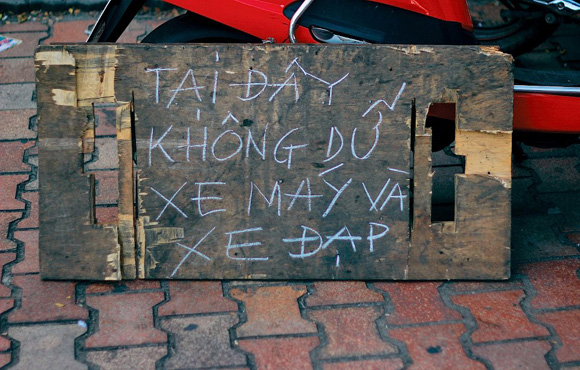 TẠI ĐÂY
KHÔNG DỮ
XE MÁY VÀ
XE ĐẠP